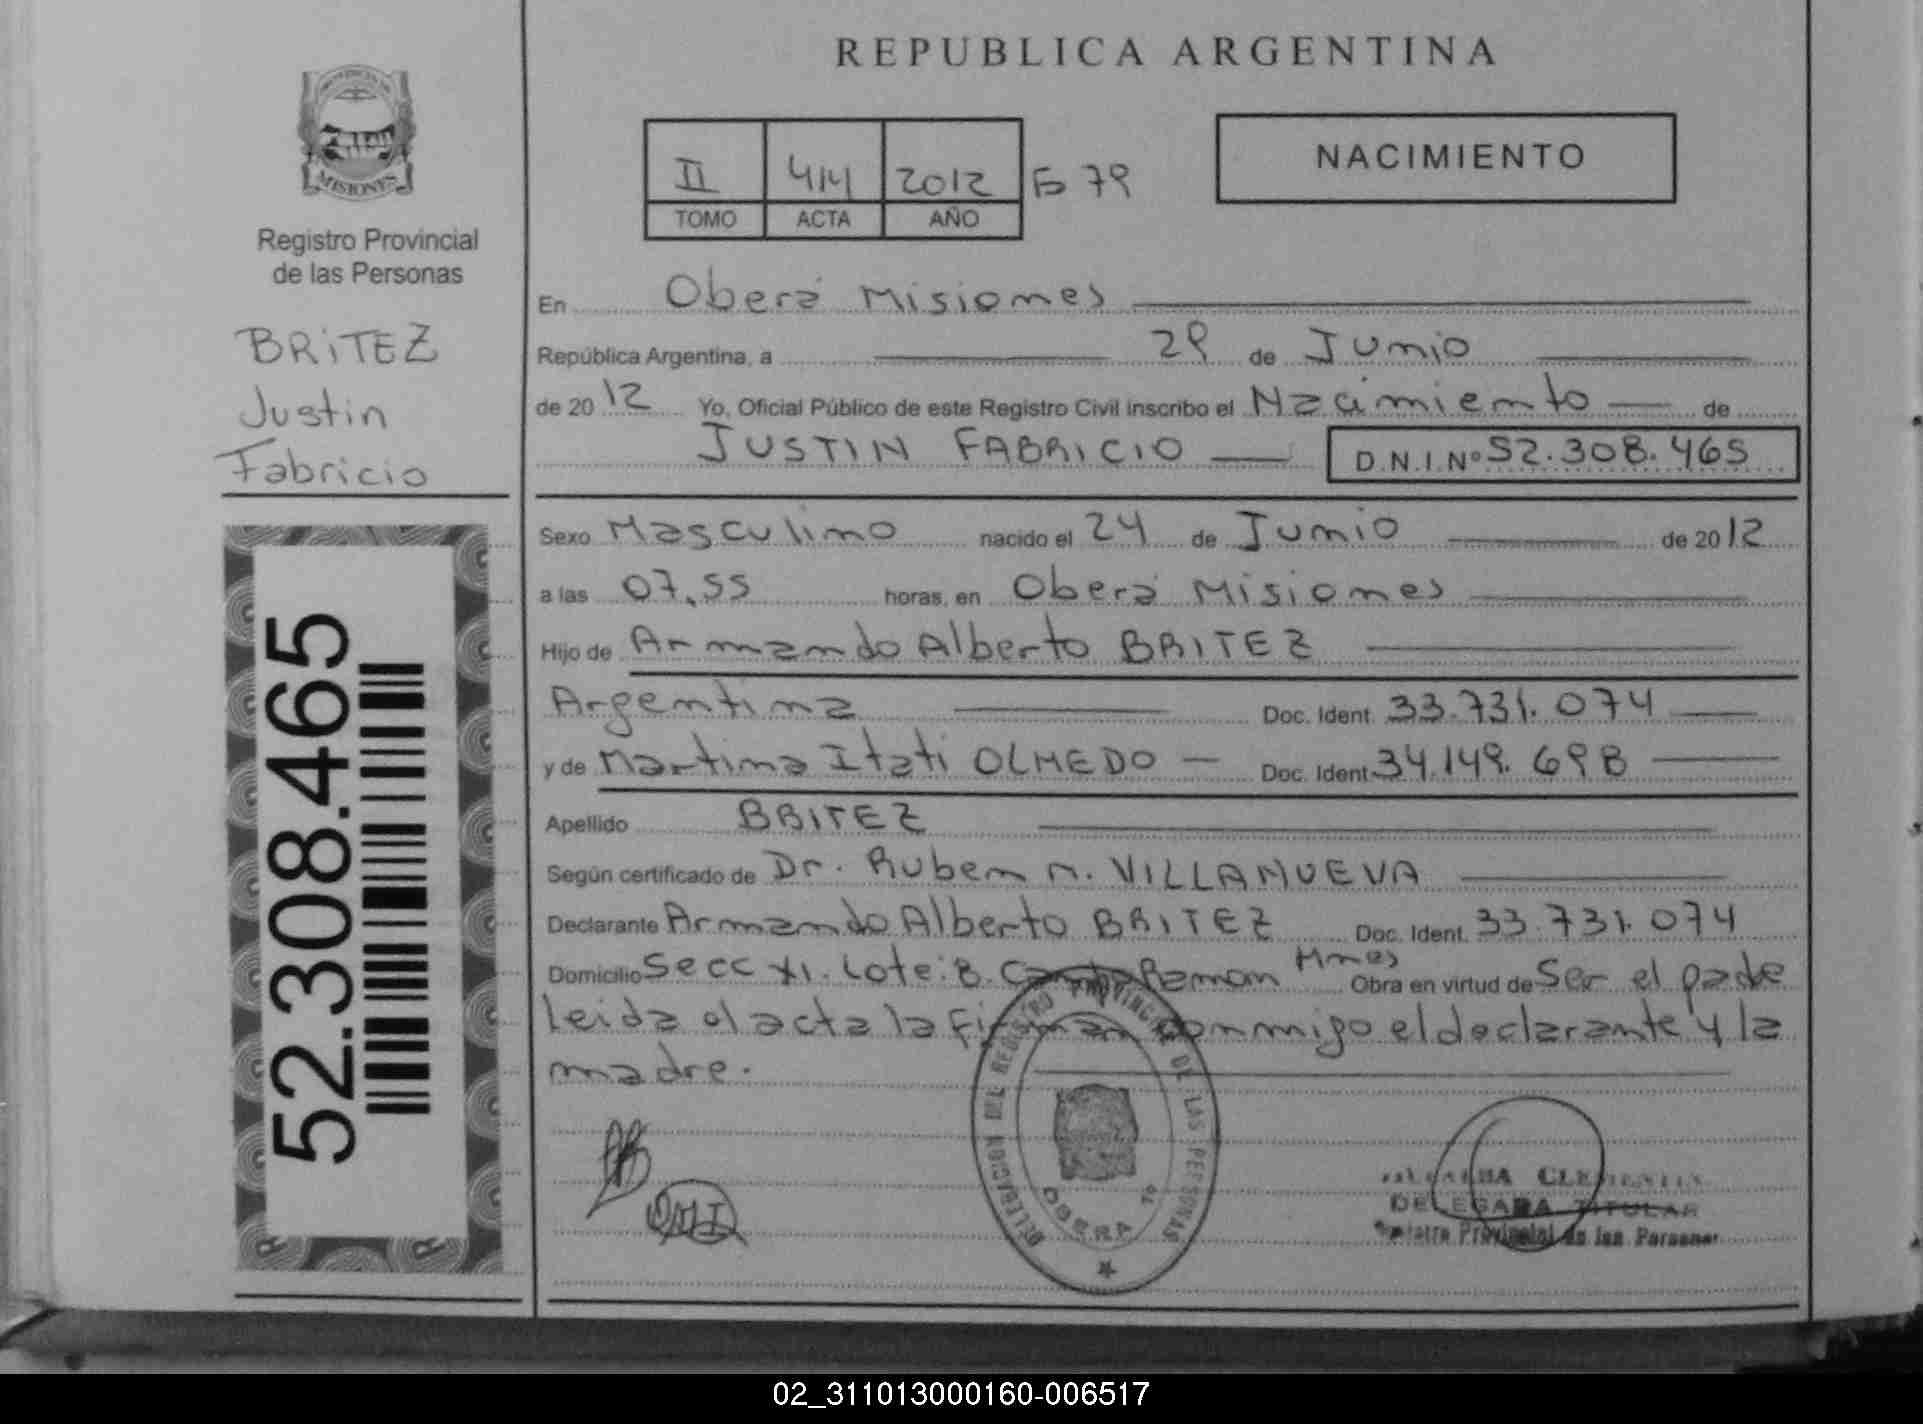 REPUBLICA ARGENTINA
PROVINCIA DE
MISIONES
Registro Provincial
de las Personas
BRITEZ
Justin
Fabricio
52.308.465
II 414 2012 Fº 79
TOMO ACTA AÑO
NACIMIENTO
En Oberá Misiones
República Argentina, a 29 de Junio
de 2012 Yo, Oficial Público de este Registro Civil inscribo el Nacimiento de
JUSTIN FABRICIO D.N.I.Nº 52.308.465
Sexo Masculino nacido el 24 de Junio de 2012
a las 07.55 horas, en Oberá Misiones
Hijo de Armando Alberto BRITEZ
Argentina Doc. Ident. 33.731.074
y de Martina Itati OLMEDO Doc. Ident. 34.149.698
Apellido BRITEZ
Según certificado de Dr. Ruben N. VILLANUEVA
Declarante Armando Alberto BRITEZ Doc. Ident. 33.731.074
Domicilio Secc XI. Lote: 8. Ramon Mnes Obra en virtud de Ser el padre
leida el acta la firman conmigo el declarante y la
madre.
DELEGACION DEL REGISTRO PROVINCIAL DE LAS PERSONAS
OBERA
DELEGADA TITULAR
Registro Provincial de las Personas
02_311013000160-006517